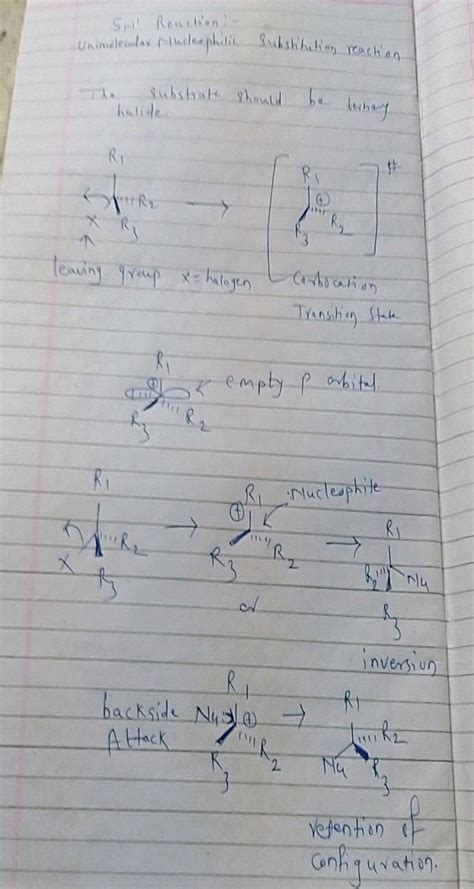 SN¹ Reaction:-
Unimolecular Nucleophilic Substitution reaction
The substrate should be tertiary
halide.
R₁
R₁ ⊕ #
X R₂ → R₃ R₂
R₃
leaving group X = halogen
Carbocation
Transition State
R₁
⊕ ← empty p orbital.
R₃ R₂
R₁
R₁ Nucleophile
⊕
X R₂ → R₃ R₂ → R₁
R₃ R₂ Nu
or R₃
inversion
R₁
backside Nu ⊕ → R₁
Attack R₃ R₂ R₂
Nu R₃
retention of
configuration.